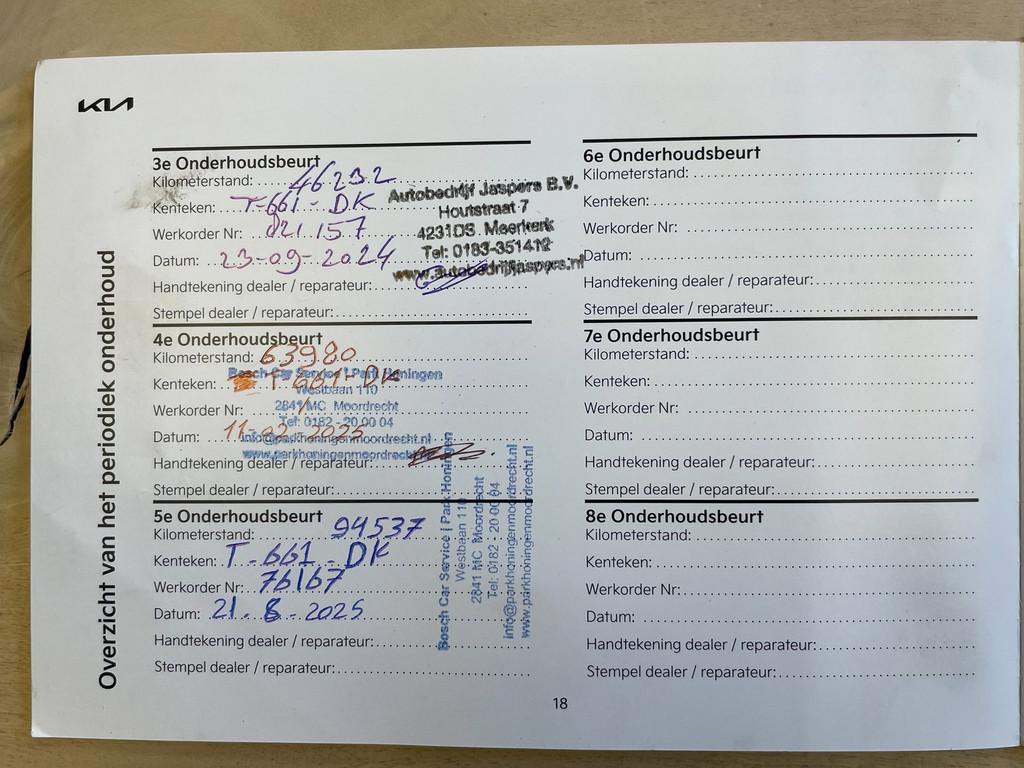 KIA
Overzicht van het periodiek onderhoud
3e Onderhoudsbeurt
Kilometerstand: 46232
Kenteken: T-661-DK
Werkorder Nr: 821157
Datum: 23-09-2024
Handtekening dealer / reparateur:
Stempel dealer / reparateur:
Autobedrijf Jaspers B.V.
Houtstraat 7
4231DS Meerkerk
Tel: 0183-351412
www.autobedrijfjaspers.nl
4e Onderhoudsbeurt
Kilometerstand: 63980
Kenteken: T-661-DK
Werkorder Nr: /
Datum: 11-02-2025
Handtekening dealer / reparateur:
Stempel dealer / reparateur:
Bosch Car Service | Park Honingen
Westbaan 110
2841 MC Moordrecht
Tel: 0182 - 20 00 04
info@parkhoningenmoordrecht.nl
www.parkhoningenmoordrecht.nl
5e Onderhoudsbeurt
Kilometerstand: 94537
Kenteken: T-661-DK
Werkorder Nr: 76167
Datum: 21-8-2025
Handtekening dealer / reparateur:
Stempel dealer / reparateur:
Bosch Car Service | Park Honingen
Westbaan 110
2841 MC Moordrecht
Tel: 0182 - 20 00 04
info@parkhoningenmoordrecht.nl
www.parkhoningenmoordrecht.nl
6e Onderhoudsbeurt
Kilometerstand:
Kenteken:
Werkorder Nr:
Datum:
Handtekening dealer / reparateur:
Stempel dealer / reparateur:
7e Onderhoudsbeurt
Kilometerstand:
Kenteken:
Werkorder Nr:
Datum:
Handtekening dealer / reparateur:
Stempel dealer / reparateur:
8e Onderhoudsbeurt
Kilometerstand:
Kenteken:
Werkorder Nr:
Datum:
Handtekening dealer / reparateur:
Stempel dealer / reparateur:
18